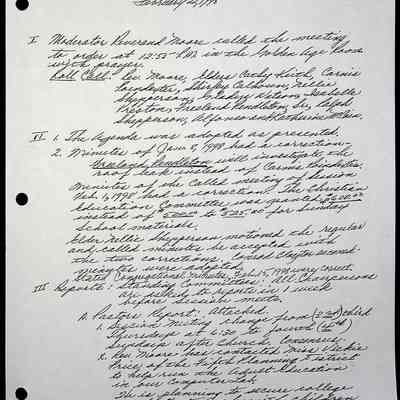 I. Moderator Reverend Moore called the meeting
to order at 12:55 P.M. in the Golden Age Room
with prayer.
Roll Call: Rev. Moore, Elders Cathy Keith,
Shirley Calhoun, Nellie
Shepperson,
Preston, Freeland Pendleton, Sr., Ralph
Shepperson, Alfonso and Katherine
II. 1. The Agenda was adopted as presented.
2. Minutes of Jan 5, 1998 had a correction-
Freeland Pendleton will investigate the
roof leak instead of
Minutes of the Called meeting of Session
Feb. 1, 1998 had a correction. The Christian
Education Committee was granted
instead of to for Sunday
School materials.
Elder Nellie Shepperson motioned the regular
and called minutes be accepted with
the two corrections. Clayton second.
Minutes were adopted.
Congregational Minutes, 1998 were correct.
III Reports: Standing Committees: All Chairpersons
are asked to report in 1 week
before Session meets
A. Pastors Report: Attached
1. Session Meeting change from (3rd) third
Thursdays at 6:30 to fourth (4th)
Sundays after church. Consensus.
2. Rev Moore has contacted Miss Vickie
Price of the District
to help run the Adult Education
in our Computer Lab.
He is planning to secure college
children